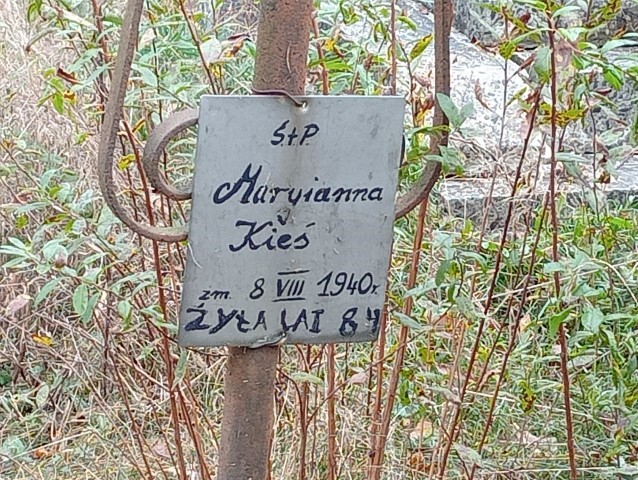 Ś+P.
Maryianna
Kieś
zm. 8 VIII 1940r.
ŻYŁA LAT 84